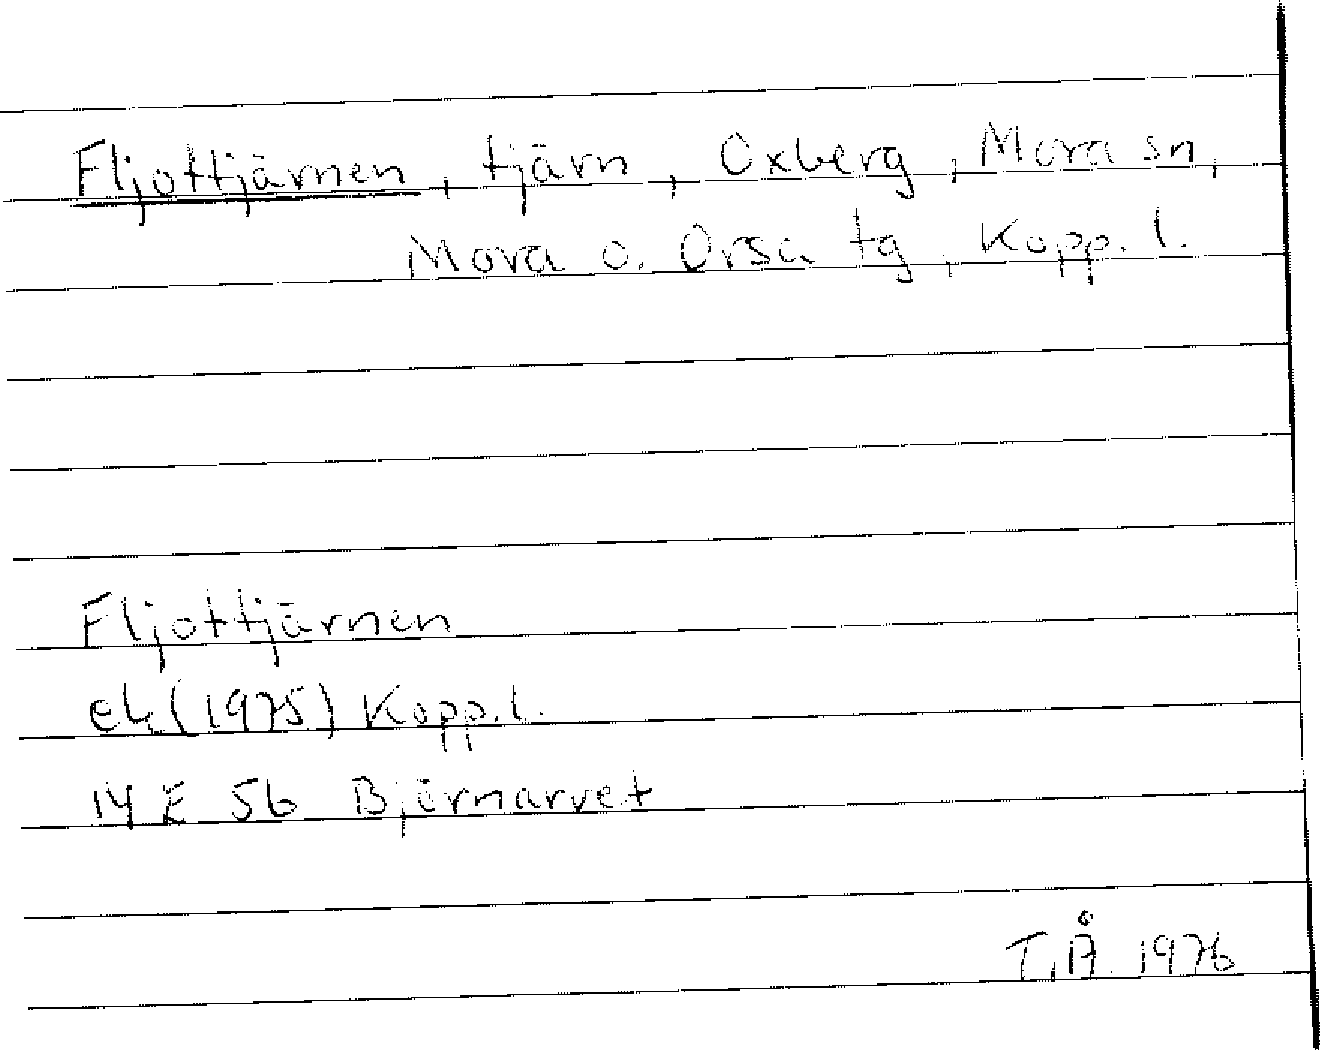 Fljottjärnen, tjärn, Oxberg, Mora sn,
Mora o. Orsa tg, Kopp. l.
Fljottjärnen
ek (1975) Kopp. l.
14 E 5b Björnarvet
T.Å. 1976